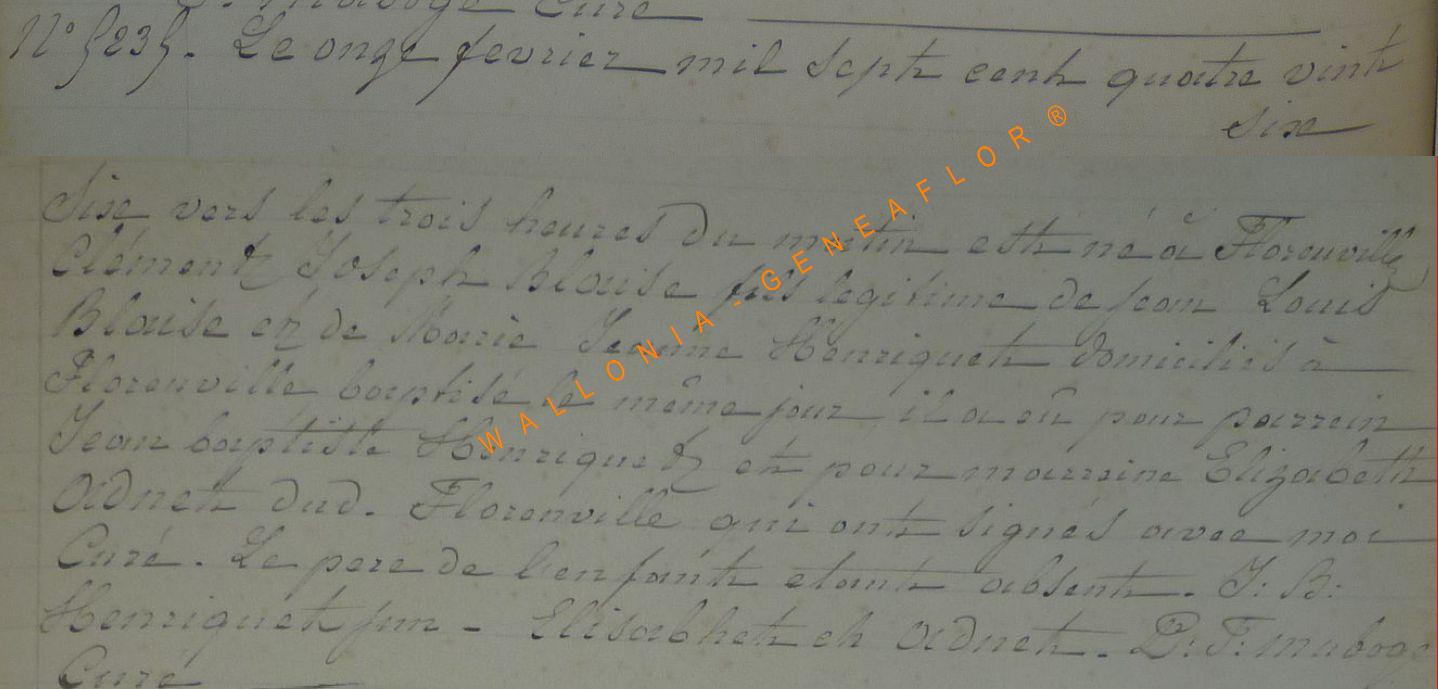 Curé
N° 5235. Le onze fevrier mil sept cent quatre vint
six
Six vers les trois heures du matin est né à Florenville
Clément Joseph Blaise fils legitime de jean Louis
Blaise et de Marie Jeanne Henriquet domiciliés à
Florenville baptisé le même jour il a eû pour parrein
Jean baptiste Henriquet et pour marreine Elizabeth
Adnet dud. Florenville qui ont signés avec moi
Curé. Le pere de l'enfant etant absent. J: B:
Henriquet jun - Elisabhet eh Adnet. D: F: maboge
Curé
WALLONIA-GENEAFLOR®